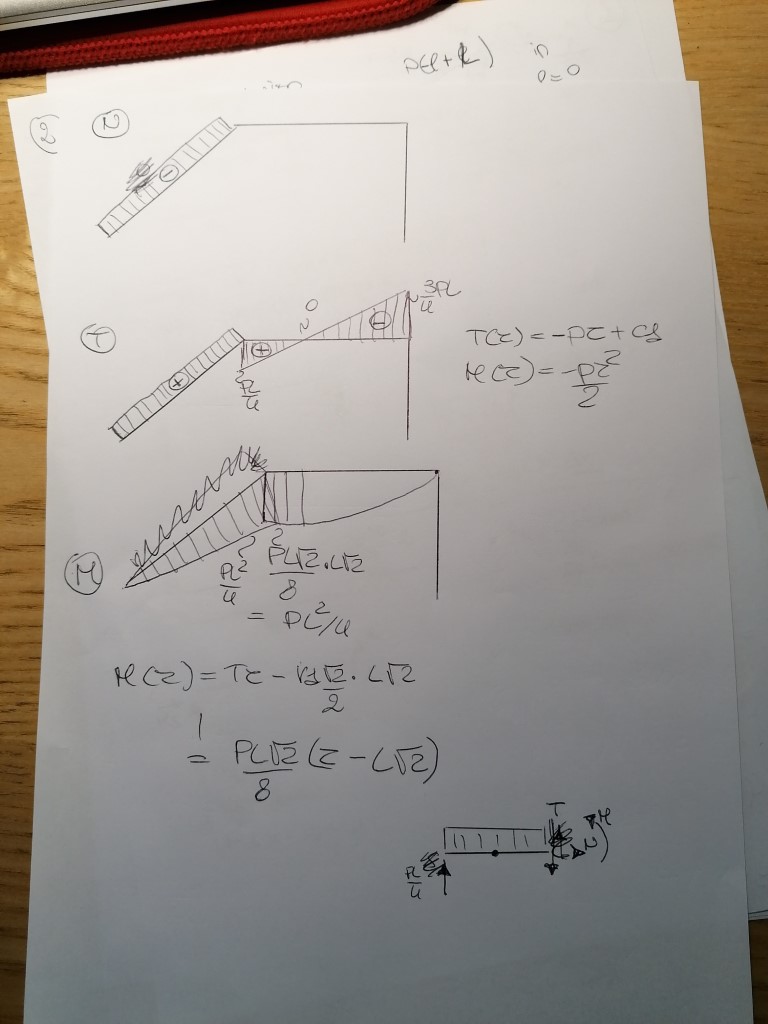 in
0=0
2 N
-
T
+
+
-
0
3PL/4
PL/4
T(z) = -pz + C
M(z) = -pz²/2
M
PL²/4
PL√2/8 · L√2
= PL²/4
M(z) = Tz - √2/2 · L√2
= PL√2/8 (z - L√2)
T
M
N
PL/4